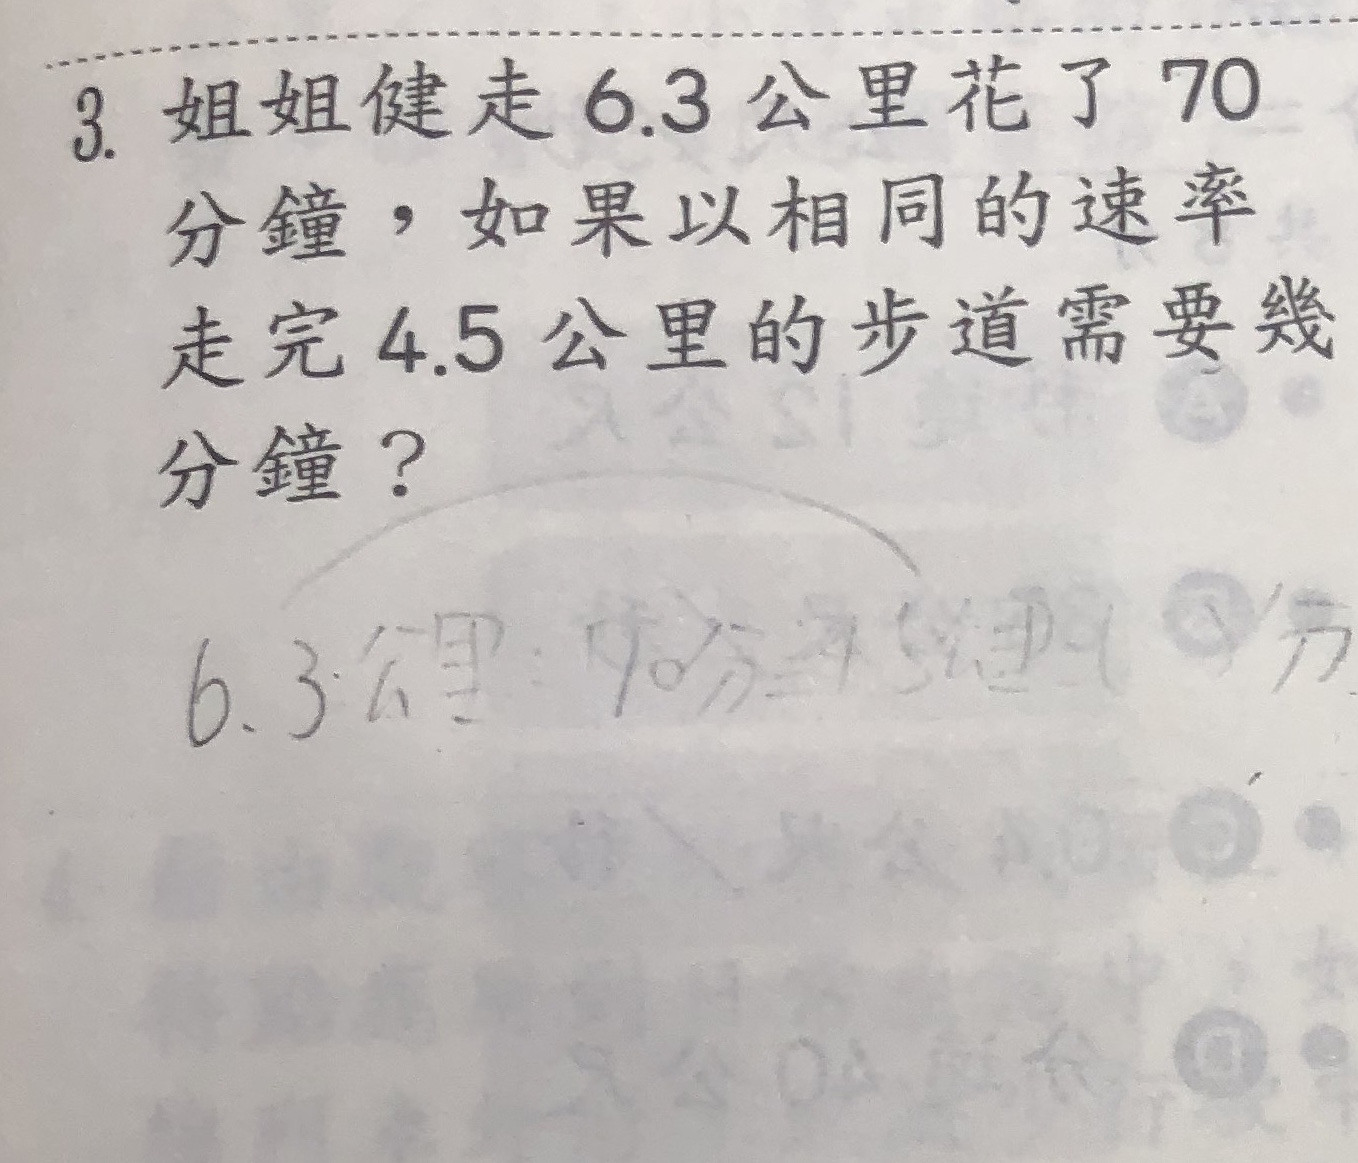 3. 姐姐健走 6.3 公里花了 70
分鐘，如果以相同的速率
走完 4.5 公里的步道需要幾
分鐘？
6.3公里：70分=4.5公里：分